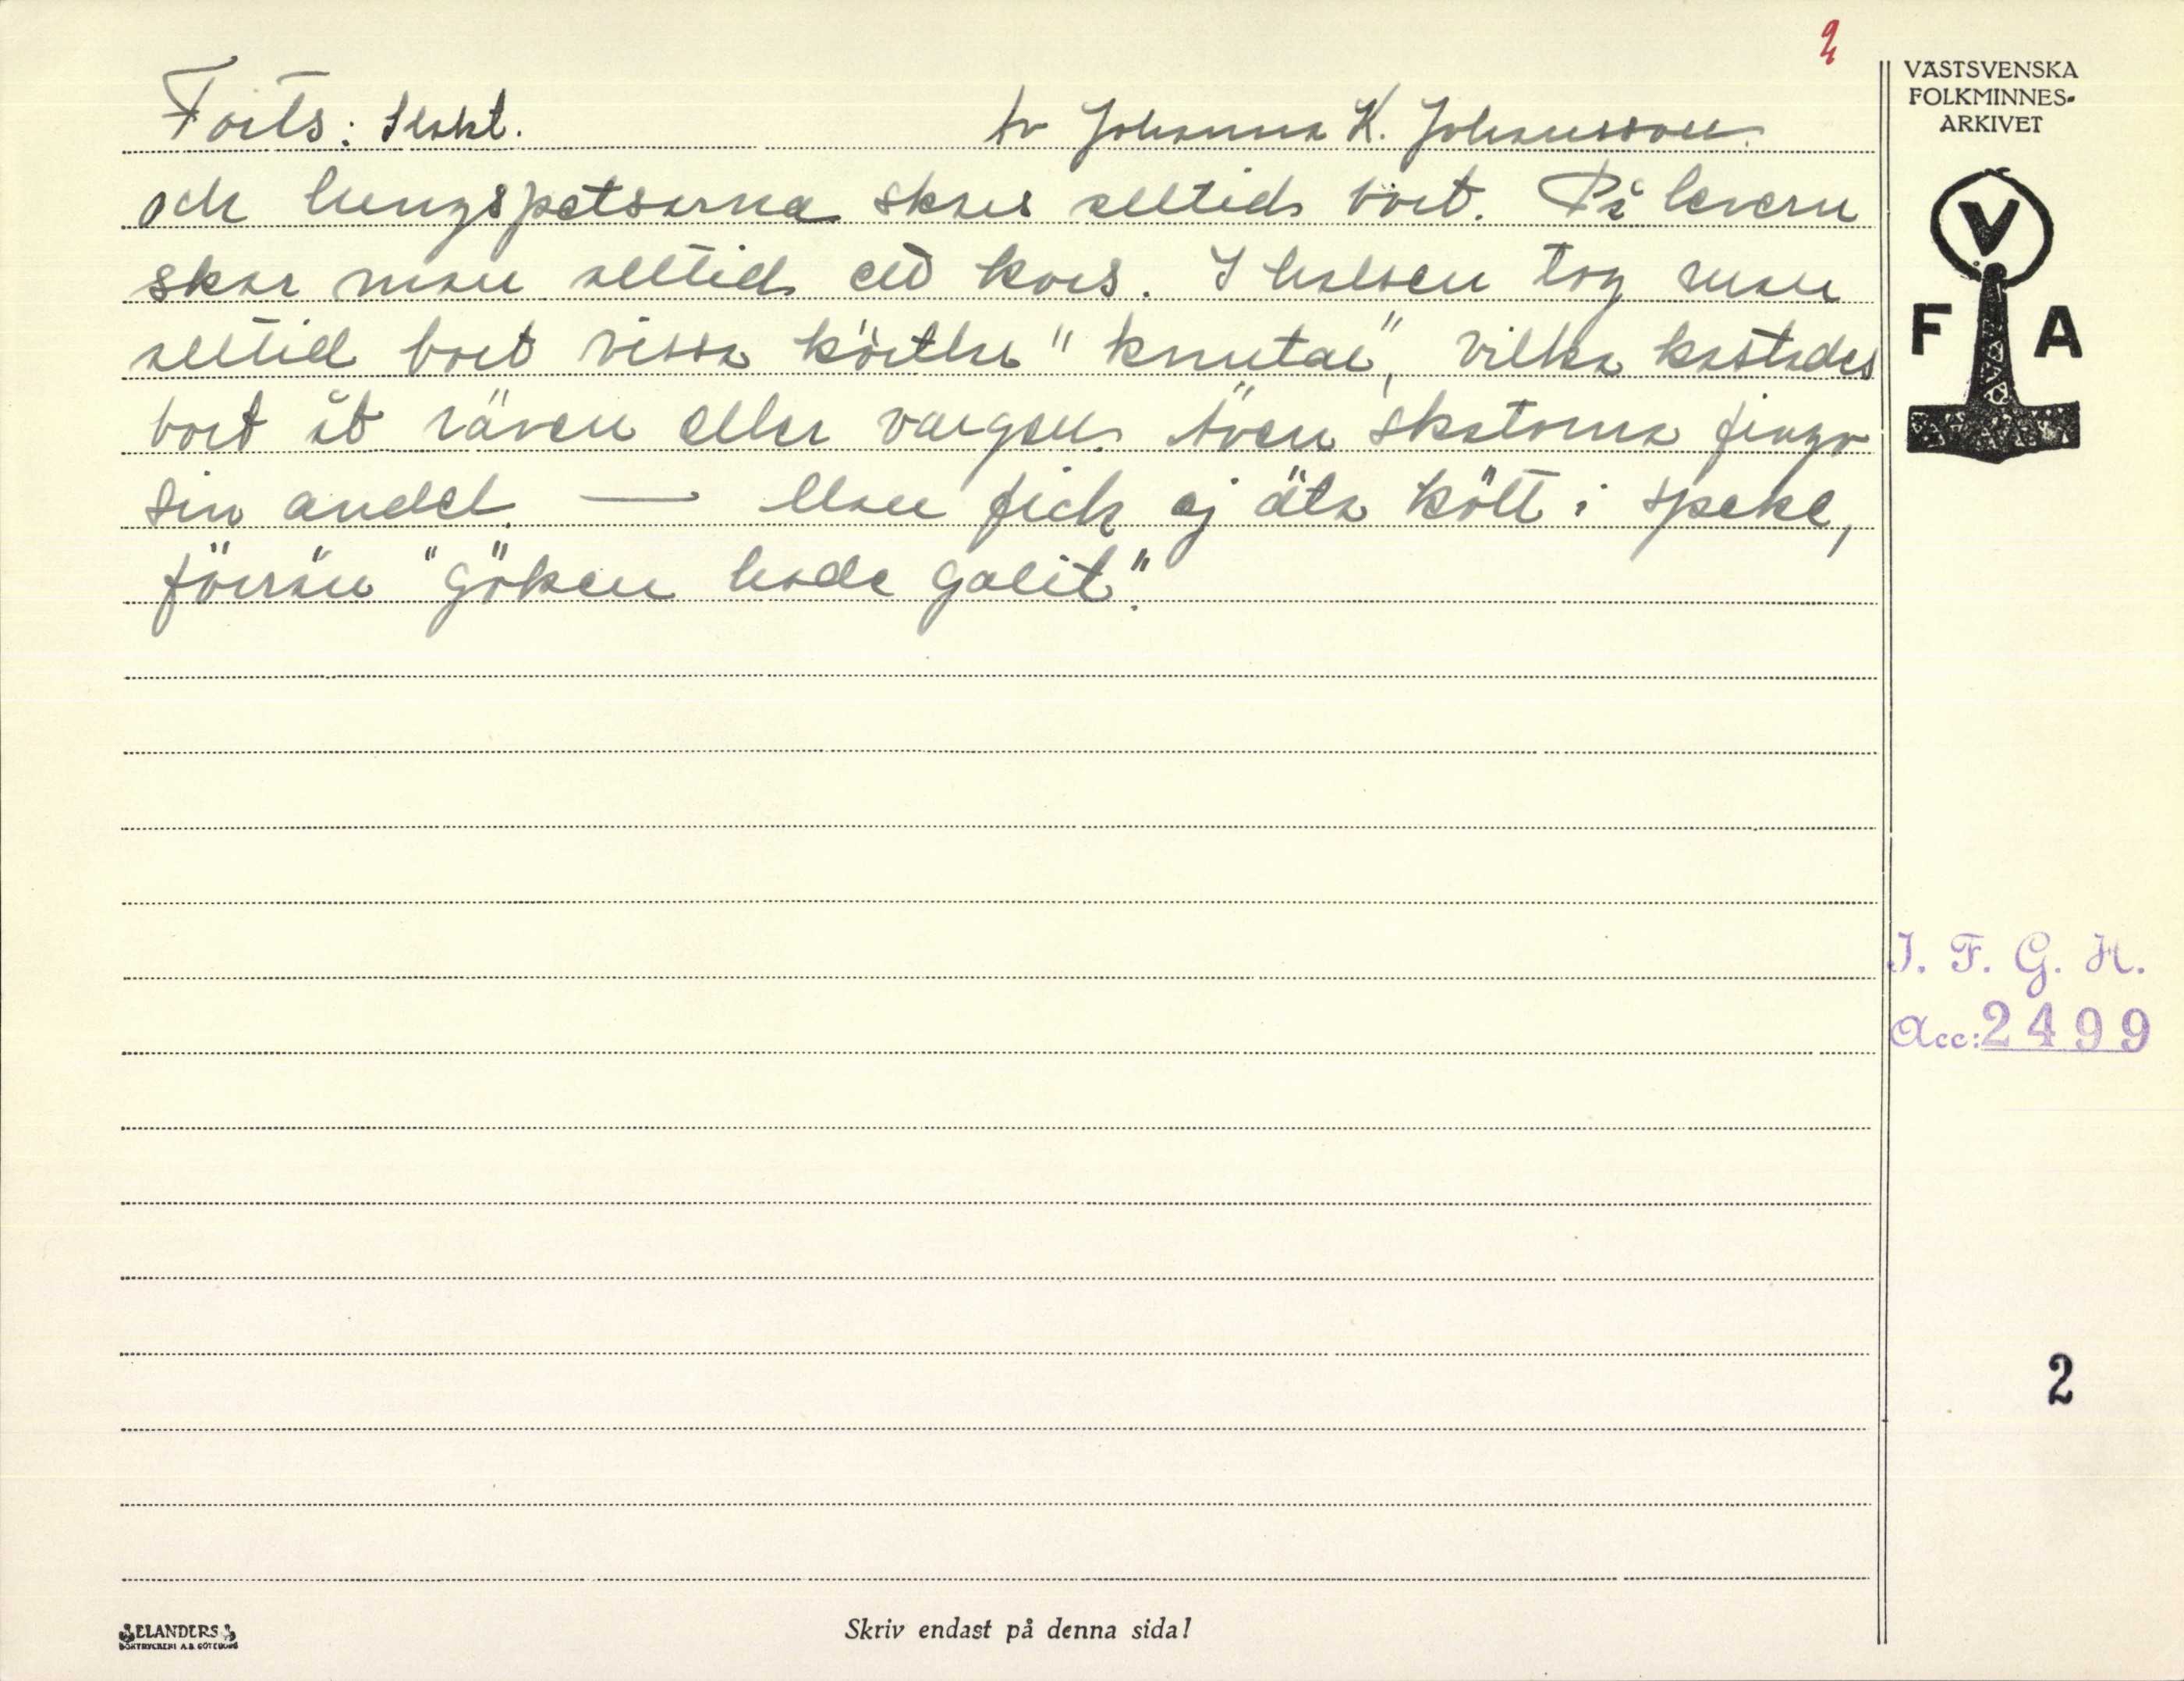 2
VÄSTSVENSKA
FOLKMINNES-
ARKIVET
Forts: Slakt. Av Johanna K. Johansson.
och lungspetsarna skars alltid bort. På levern
skar man alltid ett kors. I halsen tog man
alltid bort vissa körtlar "knutar", vilka kastades
bort åt räven eller vargen. Även skatorna fingo
sin andel. — Man fick ej äta kött i speke,
förrän "göken hade galit".
V
F A
I. F. G. H.
Acc: 2499
2
ELANDERS
BOKTRYCKERI A.B. GÖTEBORG
Skriv endast på denna sida!